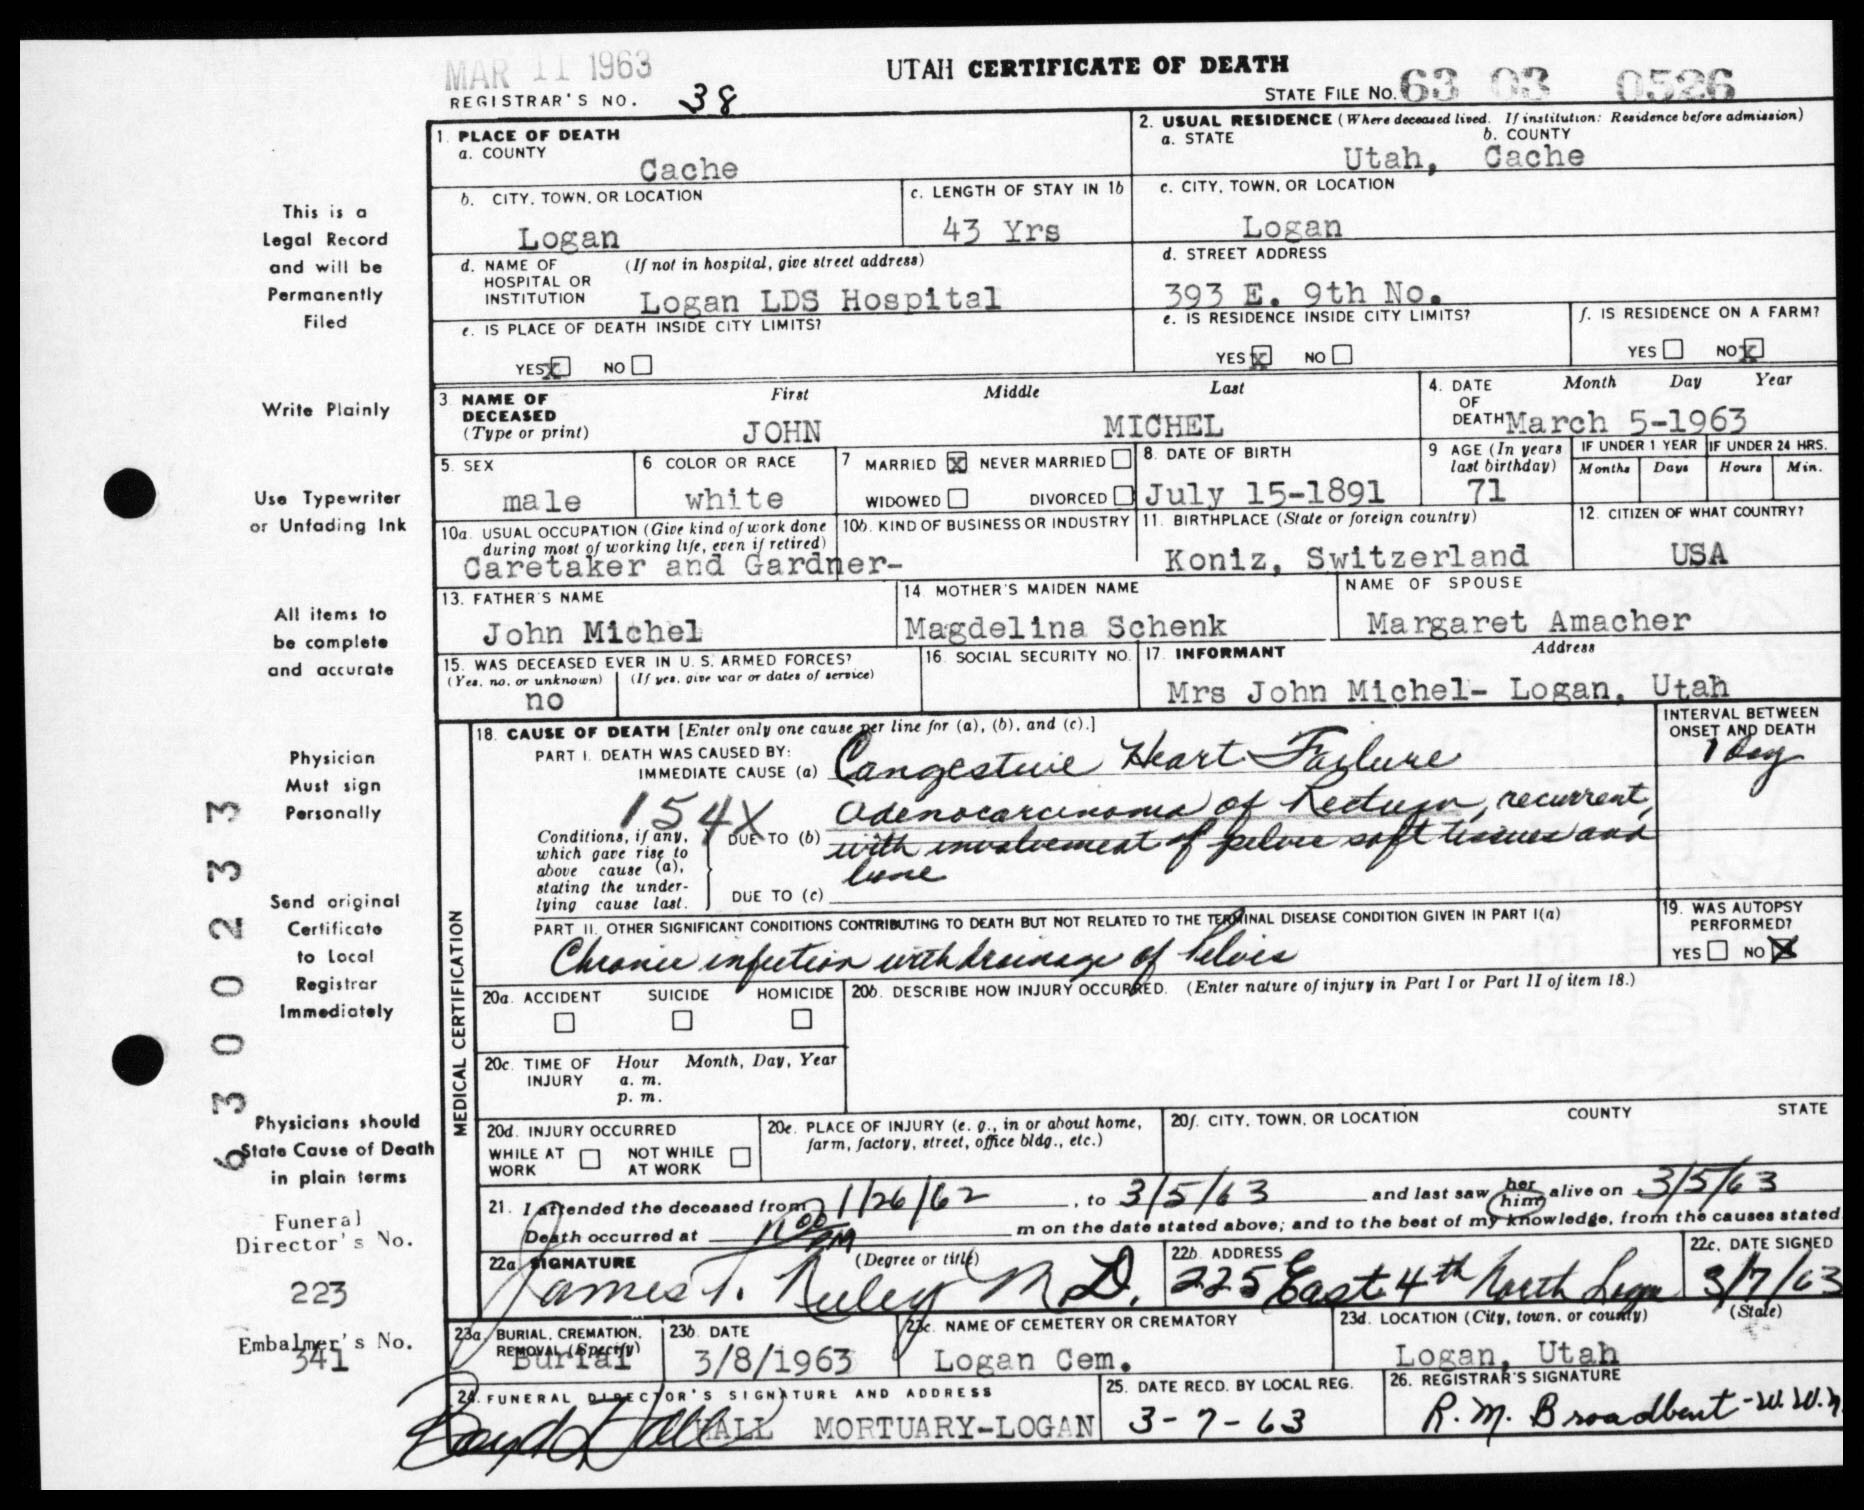 MAR 11 1963
UTAH CERTIFICATE OF DEATH
REGISTRAR'S NO. 38
STATE FILE NO. 63 03 0526
This is a
Legal Record
and will be
Permanently
Filed
Write Plainly
Use Typewriter
or Unfading Ink
All items to
be complete
and accurate
Physician
Must sign
Personally
Send original
Certificate
to Local
Registrar
Immediately
Physicians should
State Cause of Death
in plain terms
Funeral
Director's No.
223
Embalmer's No.
341
63002333
1. PLACE OF DEATH
a. COUNTY
Cache
2. USUAL RESIDENCE (Where deceased lived. If institution: Residence before admission)
a. STATE b. COUNTY
Utah, Cache
b. CITY, TOWN, OR LOCATION
Logan
c. LENGTH OF STAY IN 1b
43 Yrs
c. CITY, TOWN, OR LOCATION
Logan
d. NAME OF (If not in hospital, give street address)
HOSPITAL OR
INSTITUTION Logan LDS Hospital
d. STREET ADDRESS
393 E. 9th No.
e. IS PLACE OF DEATH INSIDE CITY LIMITS?
YES X NO
e. IS RESIDENCE INSIDE CITY LIMITS?
YES X NO
f. IS RESIDENCE ON A FARM?
YES NO X
3. NAME OF
DECEASED
(Type or print)
First Middle Last
JOHN MICHEL
4. DATE Month Day Year
OF
DEATH March 5-1963
5. SEX
male
6 COLOR OR RACE
white
7 MARRIED X NEVER MARRIED
WIDOWED DIVORCED
8. DATE OF BIRTH
July 15-1891
9 AGE (In years
last birthday)
71
IF UNDER 1 YEAR IF UNDER 24 HRS.
Months Days Hours Min.
10a. USUAL OCCUPATION (Give kind of work done
during most of working life, even if retired)
Caretaker and Gardner-
10b. KIND OF BUSINESS OR INDUSTRY
11. BIRTHPLACE (State or foreign country)
Koniz, Switzerland
12. CITIZEN OF WHAT COUNTRY?
USA
13. FATHER'S NAME
John Michel
14. MOTHER'S MAIDEN NAME
Magdelina Schenk
NAME OF SPOUSE
Margaret Amacher
15. WAS DECEASED EVER IN U. S. ARMED FORCES?
(Yes, no, or unknown) (If yes, give war or dates of service)
no
16. SOCIAL SECURITY NO.
17. INFORMANT Address
Mrs John Michel- Logan, Utah
MEDICAL CERTIFICATION
18. CAUSE OF DEATH [Enter only one cause per line for (a), (b), and (c).]
INTERVAL BETWEEN
ONSET AND DEATH
PART I. DEATH WAS CAUSED BY:
IMMEDIATE CAUSE (a) Congestive Heart Failure 1 day
154X
Conditions, if any,
which gave rise to
above cause (a),
stating the under-
lying cause last.
DUE TO (b) Adenocarcinoma of Rectum, recurrent,
with involvement of pelvic soft tissues and
bone
DUE TO (c)
PART II. OTHER SIGNIFICANT CONDITIONS CONTRIBUTING TO DEATH BUT NOT RELATED TO THE TERMINAL DISEASE CONDITION GIVEN IN PART I(a)
Chronic infection with drainage of Pelvis
19. WAS AUTOPSY
PERFORMED?
YES NO X
20a. ACCIDENT SUICIDE HOMICIDE
20b. DESCRIBE HOW INJURY OCCURRED. (Enter nature of injury in Part I or Part II of item 18.)
20c. TIME OF Hour Month, Day, Year
INJURY a. m.
p. m.
20d. INJURY OCCURRED
WHILE AT NOT WHILE
WORK AT WORK
20e. PLACE OF INJURY (e. g., in or about home,
farm, factory, street, office bldg., etc.)
20f. CITY, TOWN, OR LOCATION COUNTY STATE
21. I attended the deceased from 1/26/62, to 3/5/63 and last saw her him alive on 3/5/63
Death occurred at 11 00 PM m on the date stated above; and to the best of my knowledge, from the causes stated
22a. SIGNATURE (Degree or title)
James T. M.D.
22b. ADDRESS
225 East 4th North Logan
22c. DATE SIGNED
3/7/63
23a. BURIAL, CREMATION,
REMOVAL (Specify)
Burial
23b. DATE
3/8/1963
23c. NAME OF CEMETERY OR CREMATORY
Logan Cem.
23d. LOCATION (City, town, or county) (State)
Logan, Utah
24. FUNERAL DIRECTOR'S SIGNATURE AND ADDRESS
HALL MORTUARY-LOGAN
25. DATE RECD. BY LOCAL REG.
3-7-63
26. REGISTRAR'S SIGNATURE
R. M. Broadbent